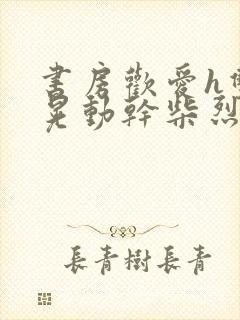 書房歡愛h
晃動幹柴烈
長青樹長青